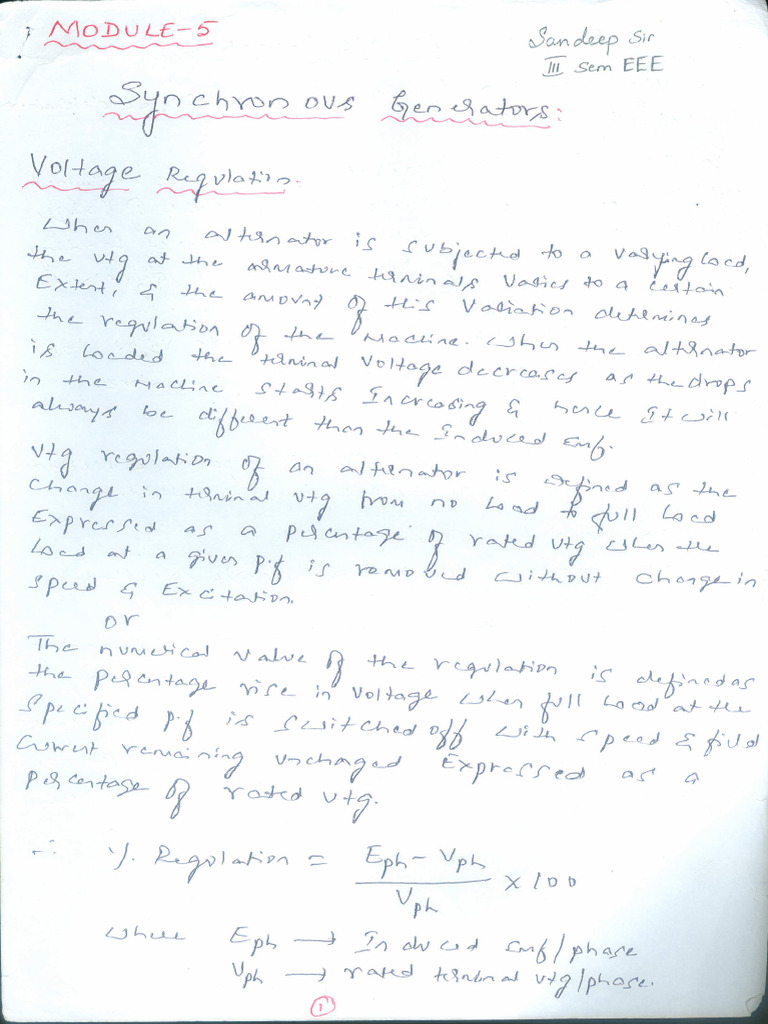 MODULE-5
Sandeep Sir
III Sem EEE
Synchronous Generators:
Voltage Regulation.
When an alternator is subjected to a varying load,
the vtg at the armature terminals varies to a certain
Extent, & the amount of this variation determines
the regulation of the machine. When the alternator
is loaded the terminal voltage decreases as the drops
in the machine starts Increasing & hence It will
always be different than the Induced emf.
Vtg regulation of an alternator is defined as the
change in terminal vtg from no load to full load
Expressed as a percentage of rated vtg when the
load at a given p.f is removed without change in
speed & Excitation.
or
The numerical value of the regulation is defined as
the percentage rise in voltage when full load at the
specified p.f is switched off with speed & field
current remaining unchanged Expressed as a
percentage of rated vtg.
∴ % Regulation = (Eph - Vph) / Vph × 100
where Eph → Induced emf/phase
Vph → rated terminal vtg/phase.
1